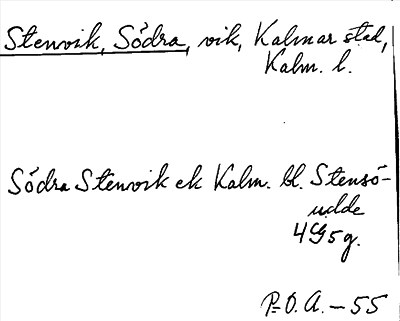 Stenvik, Södra, vik, Kalmar stad,
Kalm. l.
Södra Stenvik ek Kalm. bl. Stensö-
udde
4G5g.
P.O.A. – 55